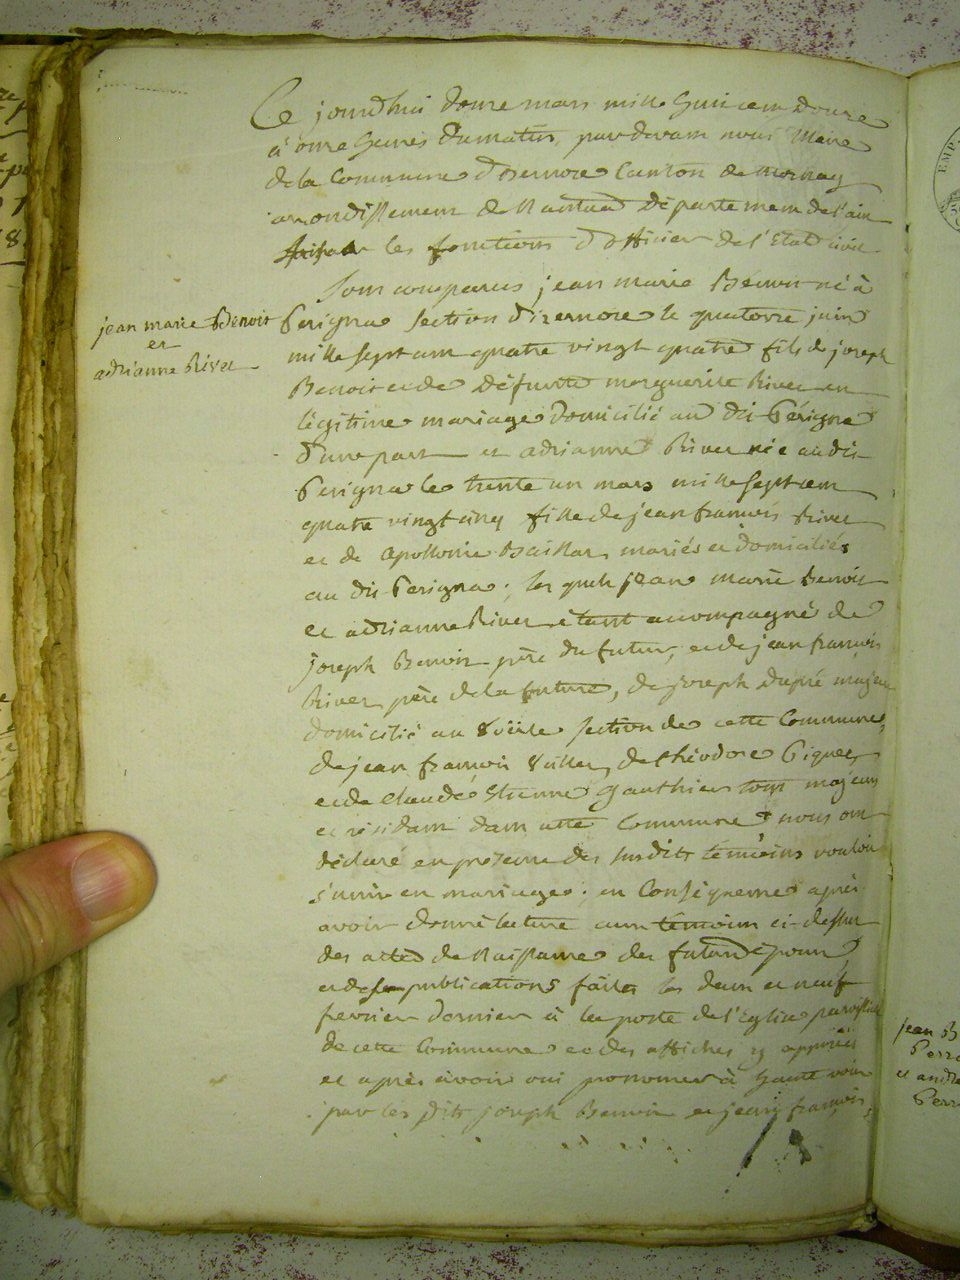 Ce jourdhui douze mars mille huit cent douze
à onze heures du matin, pardevant nous Maire
de la Commune d'Izernore Canton de
arrondissement de Nantua département de l'ain
les fonctions d'officier de l'Etat civil
Sont comparus jean marie Benoit né à
jean marie Benoit
et
adrianne Rivet
Perignat section d'izernore le quatorze juin
mille sept cent quatre vingt quatre fils de joseph
Benoit et de défunte marguerite Rivet en
légitime mariage domicilié au dit Pérignat
d'une part et adrianne Rivet née audit
Perignat le trente un mars mille sept cent
quatre vingt cinq fille de jean francois Rivet
et de Apollonie mariés et domiciliés
au dit Perignat; les quels jean marie Benoit
et adrianne Rivet étant accompagné de
joseph Benoit père du futur, et de jean francois
Rivet père de la future, de joseph dupré majeur
domicilié au section de cette Commune,
de jean francois de théodore
et de Claude Etienne Gauthier tous majeurs
et résidant dans cette Commune nous ont
déclaré en présence des susdits témoins vouloir
s'unir en mariage; en Conséquence après
avoir donné lecture aux témoins ci-dessus
des actes de Naissance des futurs époux
et des publications faites les deux et neuf
fevrier dernier à la porte de l'Eglise paroissiale
de cette Commune et des affiches y apposées
et après avoir oui prononcer à haute voix
par les dits joseph Benoit et jean francois
jean B